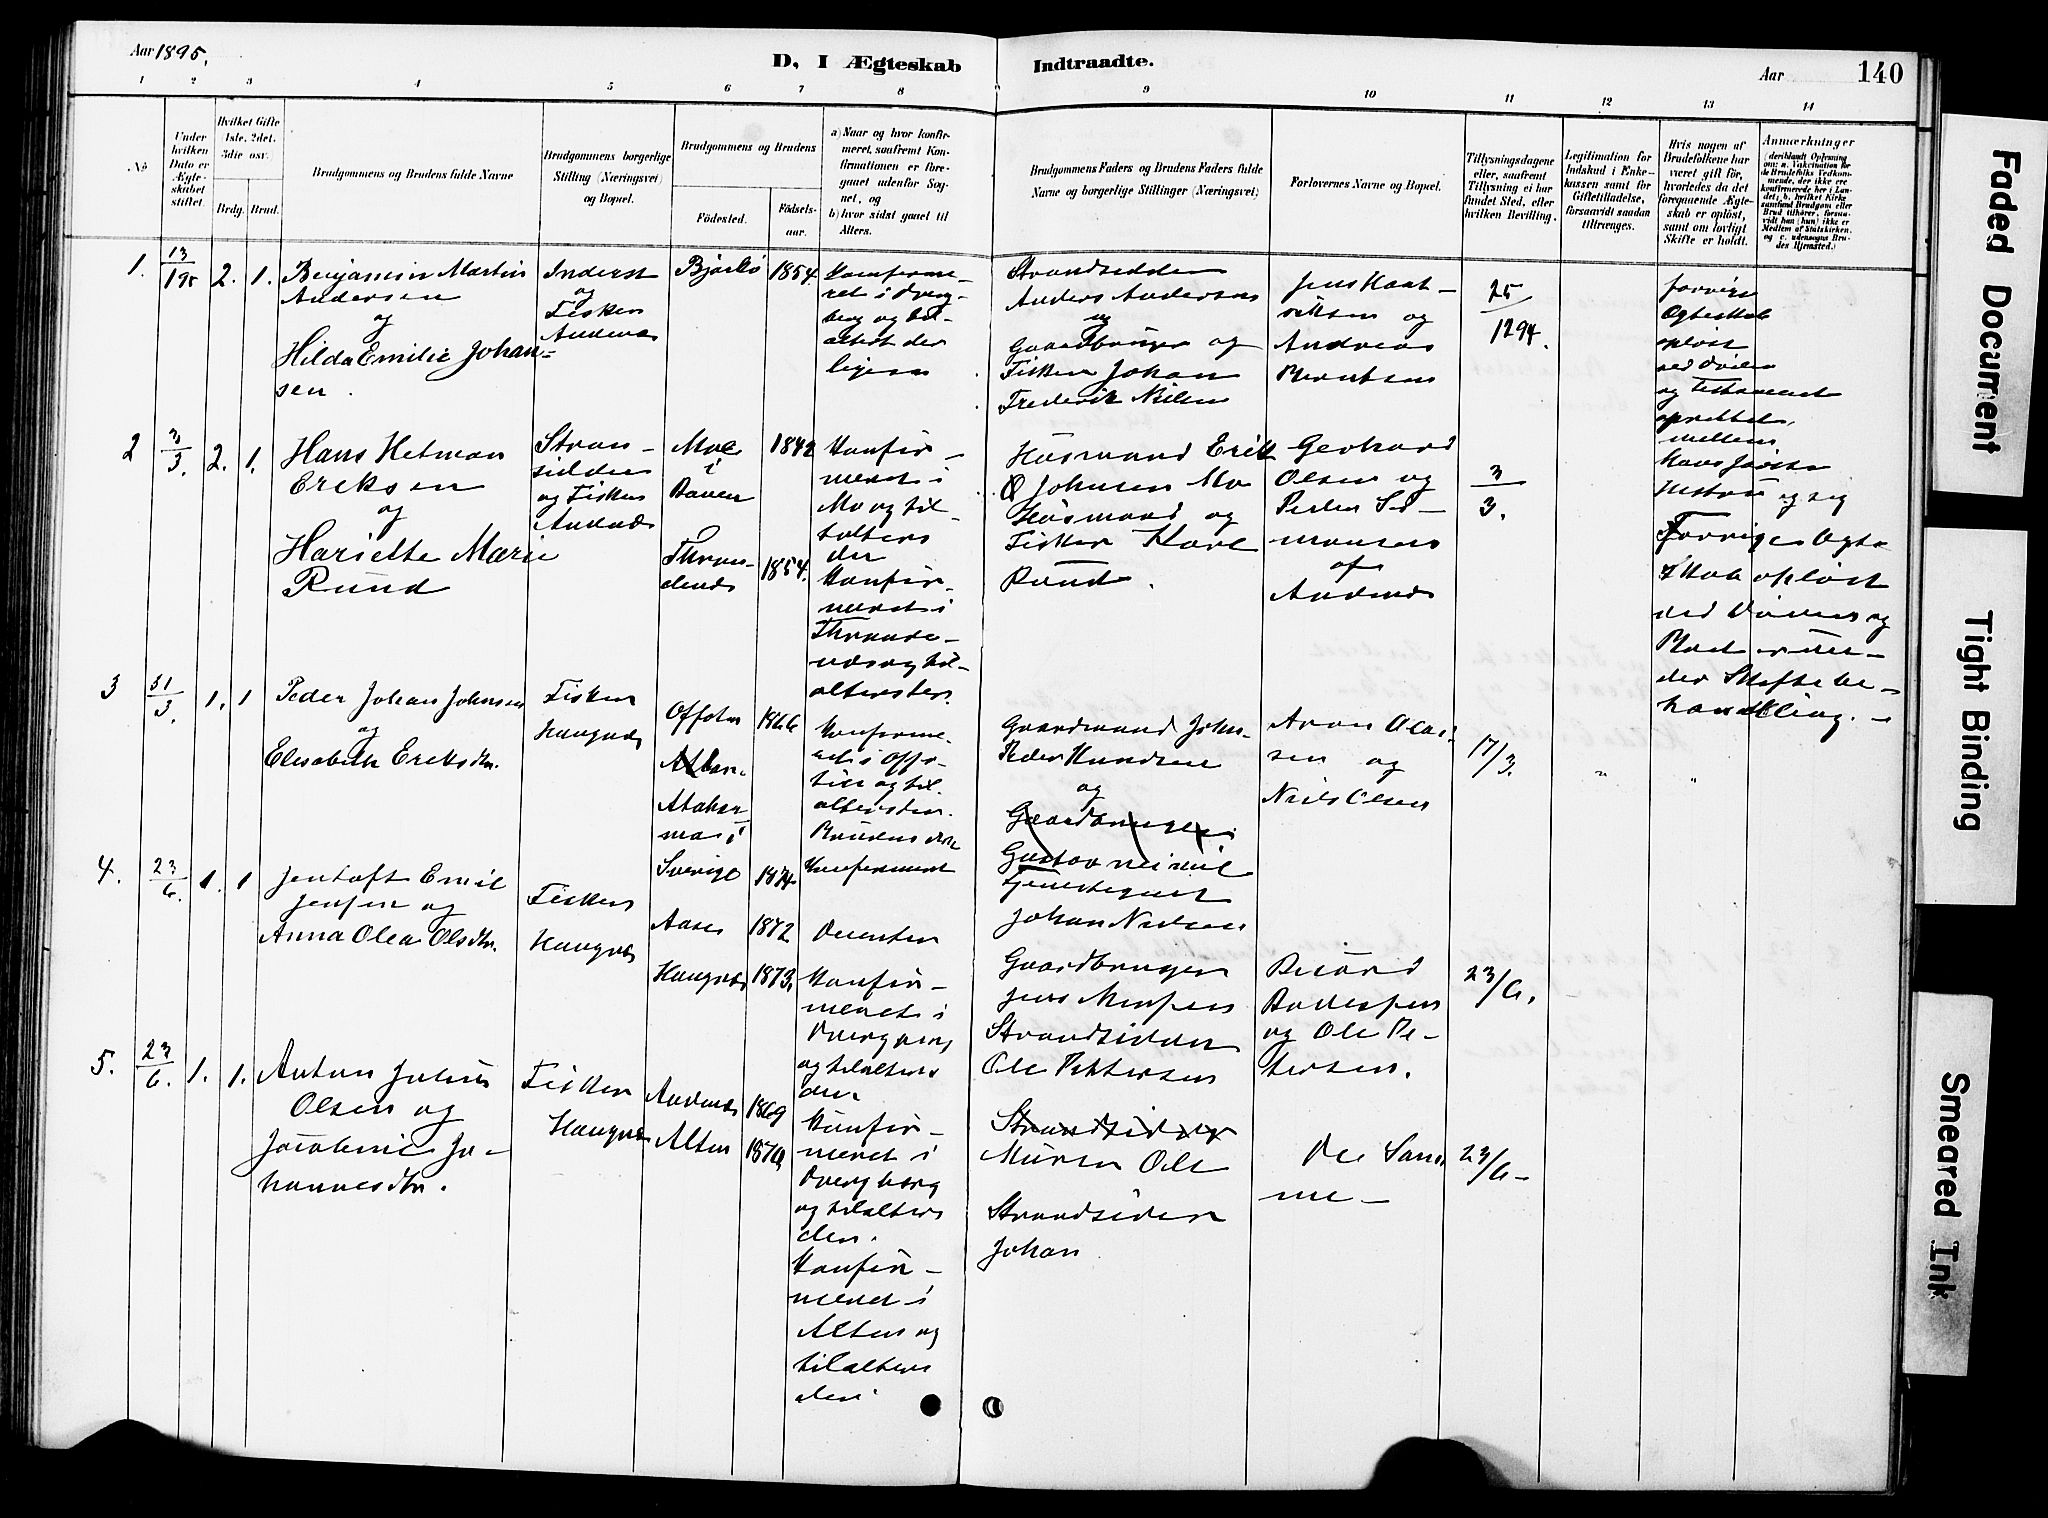 Aar 1895.
D. I Ægteskab
Indtraadte.
Aar
140
1 2 3 4 5 6 7 8 9 10 11 12 13 14
No
Under hvilken Dato er Ægteskabet stiftet.
Hvilket Gifte 1ste, 2det, 3die osv.
Brdg. Brud.
Brudgommens og Brudens fulde Navne
Brudgommens borgerlige Stilling (Næringsvei) og Bopæl.
Brudgommens og Brudens
Födested.
Födselsaar.
a) Naar og hvor konfirmeret, saafremt Konfirmationen er foregaaet udenfor Sognet, og
b) hvor sidst gaaet til Alters.
Brudgommens Faders og Brudens Faders fulde Navne og borgerlige Stillinger (Næringsvei)
Forlovernes Navne og Bopæl.
Tillysningsdagene eller, saafremt Tillysning ei har fundet Sted, efter hvilken Bevilling.
Legitimation for Indskud i Enkekassen samt for Giftetilladelse, forsaavidt saadan tiltrænges.
Hvis nogen af Brudefolkene har været gift för, hvorledes da det foregaaende Ægteskab er oplöst, samt om lovligt Skifte er holdt.
Anmærkninger
1. 13/1 95 2. 1.
Benjamin Martin
Andersen
og
Hilda Emilie Johan-
sen.
Inderst
og
Fisker
Andenæs
Bjarkö 1854.
Konfirme-
ret i Dverg-
berg og til-
altert der
ligesa
Strandsidder
Anders Andersen
og
Gaardbruger og
Fisker Johan
Frederik Nilsen
og
Andreas
Berntsen
25/12 94.
forrige
Ægteskab
opløst
ved Døden
og Testament
oprettet
mellem
og sig
2 3/3. 2. 1.
Hans Hetman
Eriksen
og
Hariette Marie
Rund
Stran-
sidder
og Fisker
Andenæs
Moe
i
Ranen
1842
Thron-
denæs
1854.
Konfir-
meret i
Mo og til-
alters
der
Konfir-
meret i
Thronde-
næs og til-
alters der.
Husmand Erik
Johnsen Mo
Husmand og
Fisker Karl
Rund.
Gerhard
Olsen og
Peder Si-
monsen
af
Andenæs
3/3.
Forrige Ægte
skab opløst
ved Døden og
Boet un-
der Skiftebe-
handling.
3 31/3. 1. 1
Peder Johan Johnsen
og
Elisabeth Eriksdtr.
Fisker
Haugnæs
Offoten 1866
i
Sverige 1874
Konfirme-
ret i Offo-
ten og til-
alters der.
Bruden der
Konfirmeret
Gaardmand John
Peder Knudsen
og
Gaardbruger
Aron Olai-
sen og
Nils Olsen
17/3.
"
"
Johan Nielsen
4. 23/6. 1. 1
Jentoft Emil
Jensen og
Anna Olea Olsdtr.
Fisker
Haugnæs
Aase 1872
Haugnæs 1873.
Konfir-
meret i
Dvergberg
og tilalters
der.
Gaardbruger
Strandsidder
Ole Pettersen
og Ole Pe-
tersen.
23/6.
5. 23/6. 1. 1.
Anton Julius
Olsen og
Jacobine Jo-
hannesdtr.
Fisker
Haugnæs
Andenæs 1869
Alten
Konfir-
meret i
Dvergberg
og tilalters
der.
Konfir-
meret i
Alten og
tilalters
der
Strandsidder
Murer Ole
Strandsidder
Johan
De Sam-
me -
23/6 -
Faded Document
Tight Binding
Smeared Ink